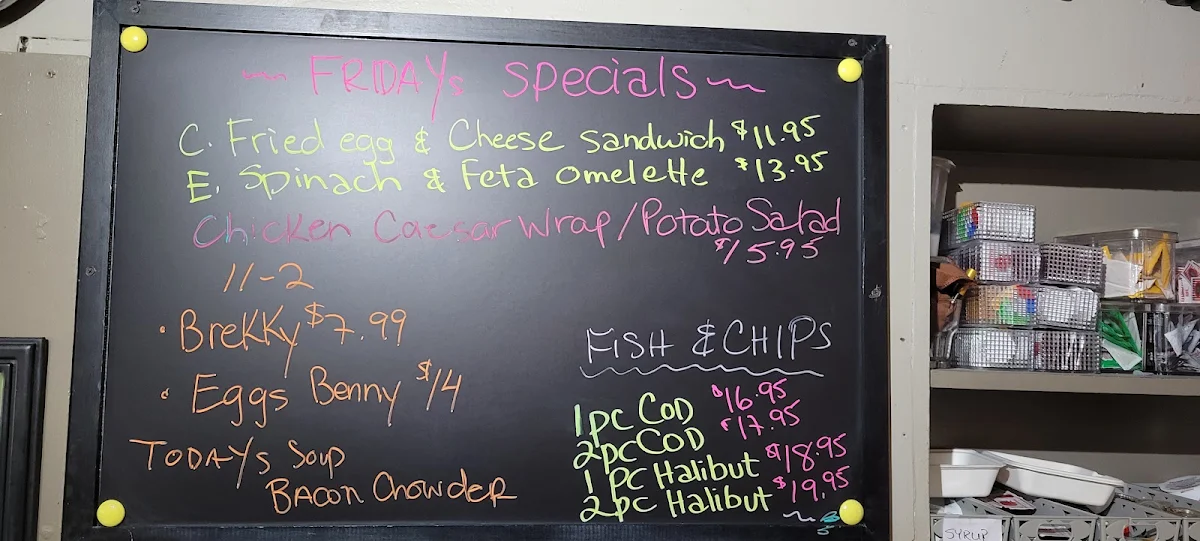 ~ FRIDAYs Specials ~
C. Fried egg & Cheese sandwich $11.95
E. Spinach & Feta omelette $13.95
Chicken Caesar Wrap/Potato Salad
$15.95
11-2
• BreKKy $7.99
• Eggs Benny $14
TODAYs Soup
BACon Chowder
FISH & CHIPS
1pc COD $16.95
2pc COD $17.95
1 pc Halibut $18.95
2pc Halibut $19.95
SYRUP